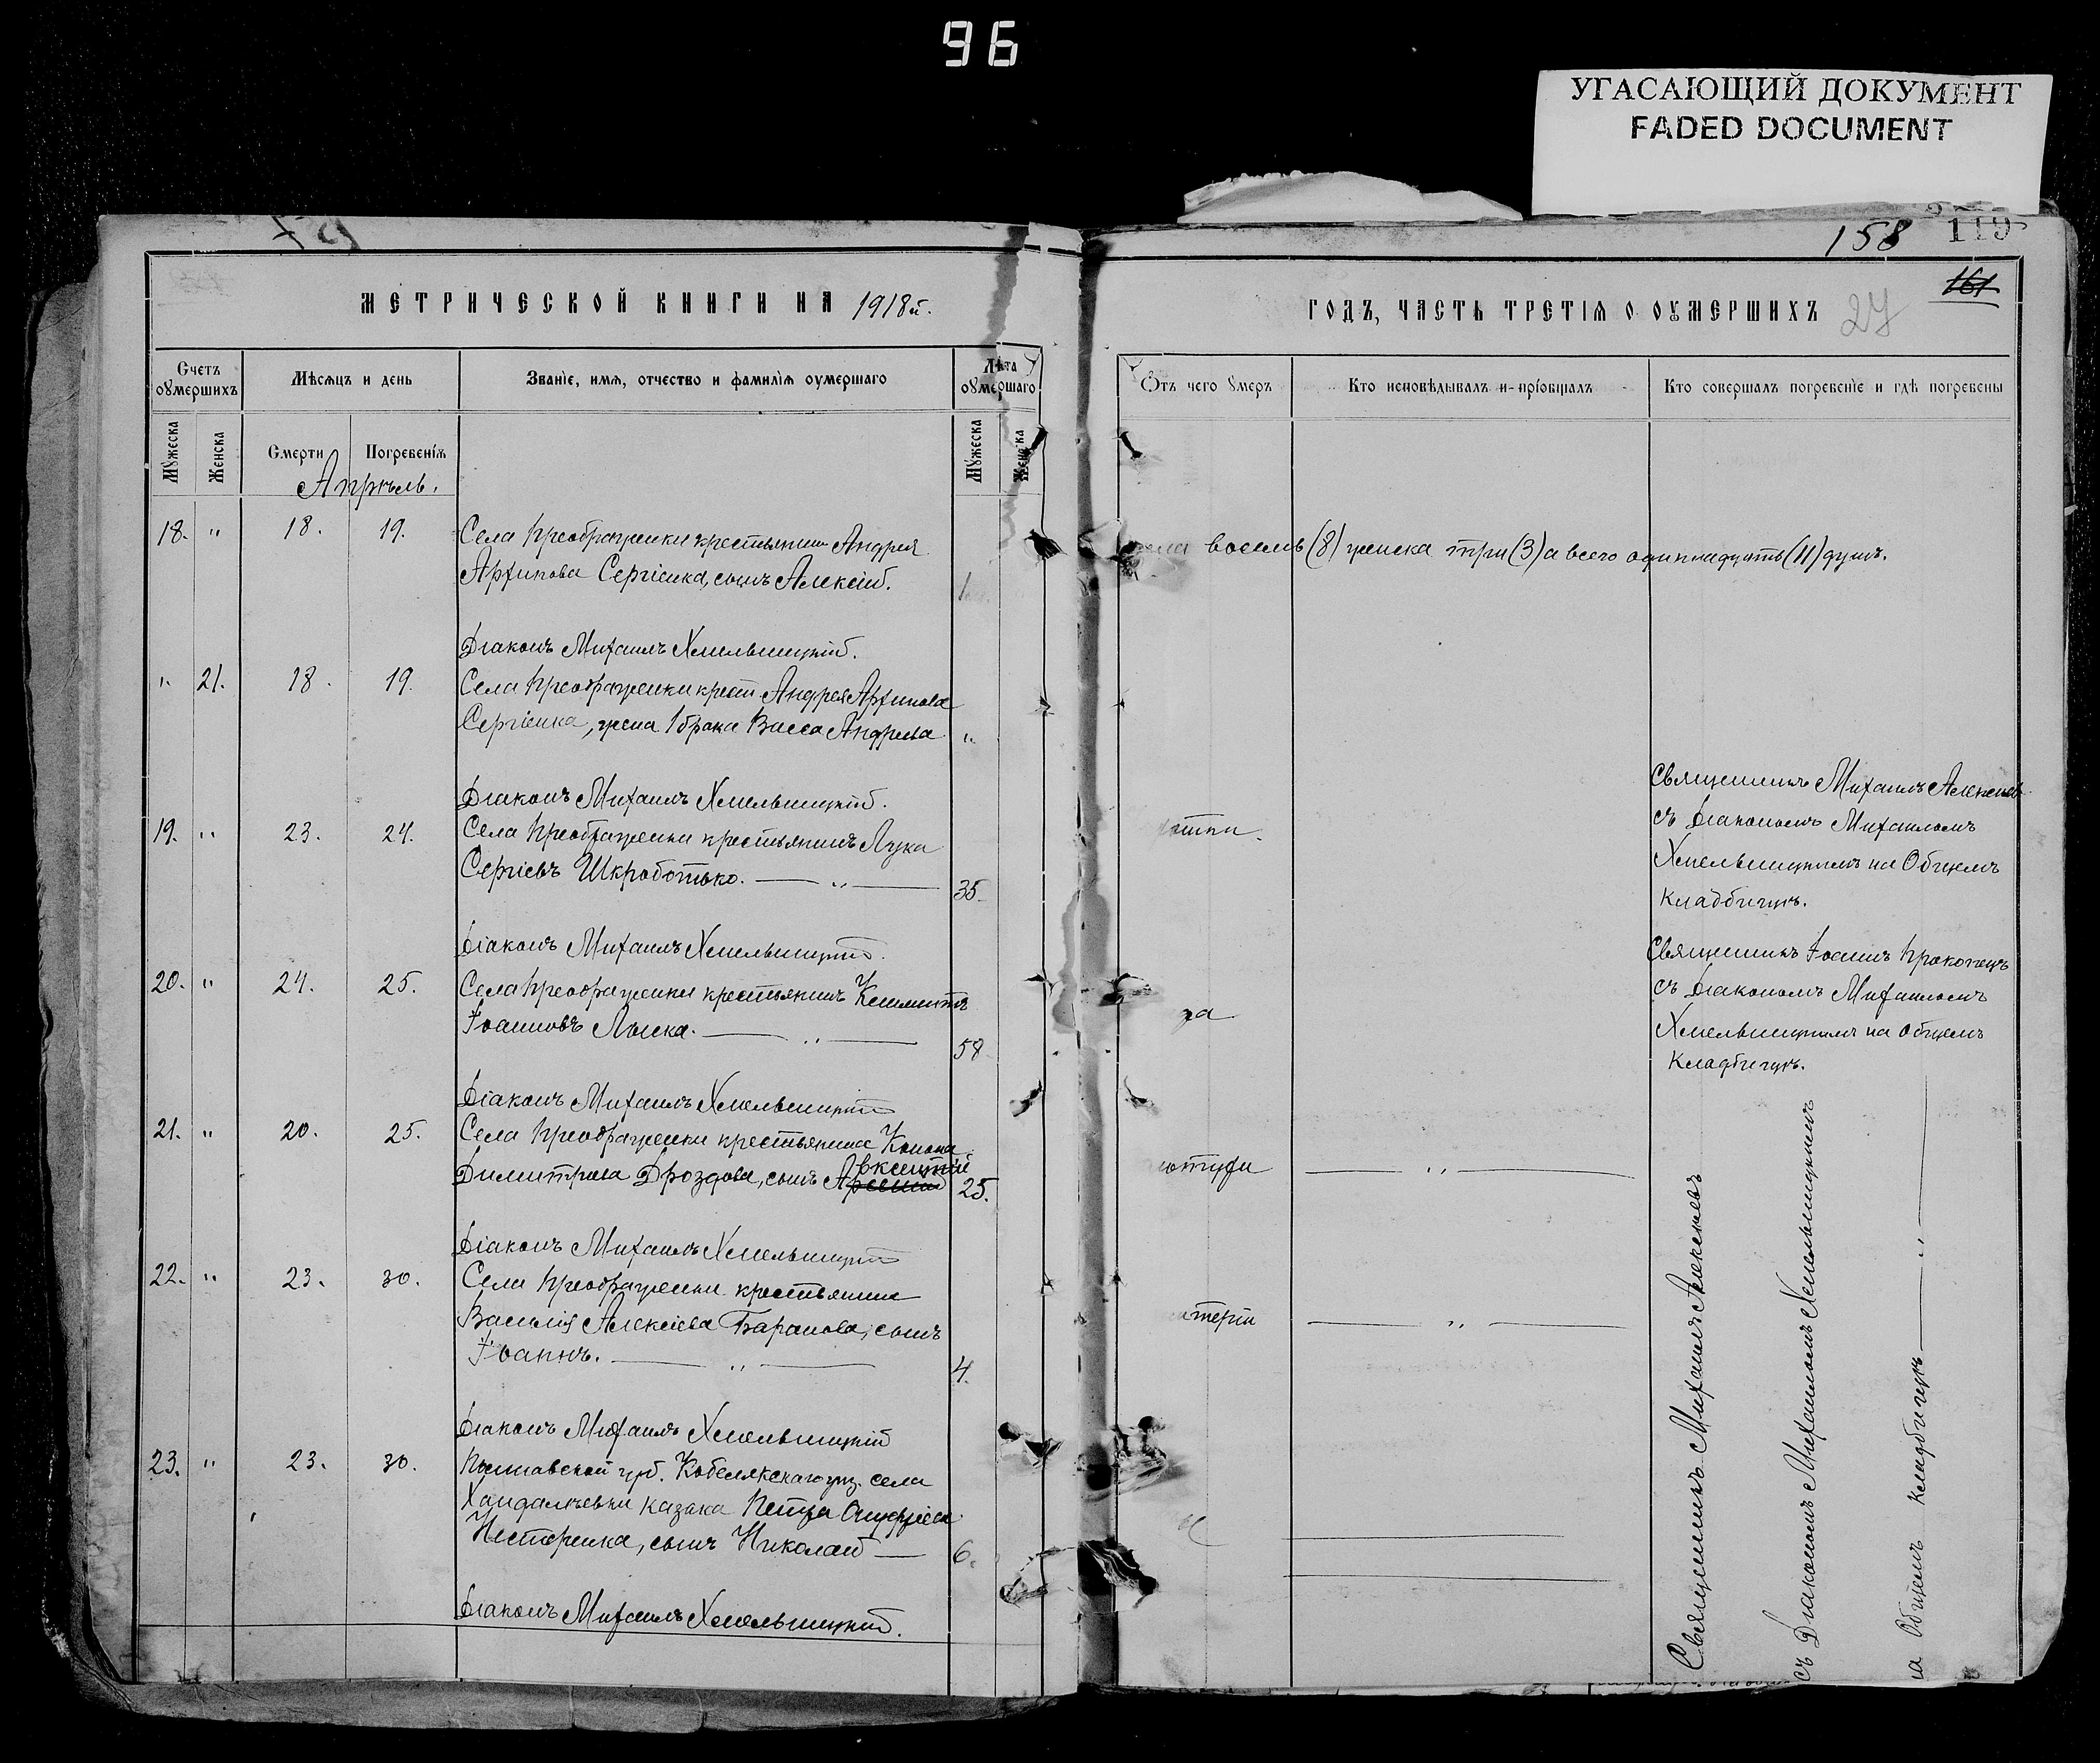 96
УГАСАЮЩИЙ ДОКУМЕНТ
FADED DOCUMENT
158 119
161
МЕТРИЧЕСКОЙ КНИГИ НА 1918й.
Счетъ оумершихъ
Мѣсяцъ и день
Званіе, имя, отчество и фамилія оумершаго
Лѣта оумершаго
Мужеска
Женска
Смерти
Погребенія
Мужеска
Женска
Апрѣль.
18. " 18. 19. Села Преображенки крестьянина Андрея
Архипова Сергіенка, сынъ Алексій. 1
Діаконъ Михаилъ Хмельницкій.
" 21. 18. 19. Села Преображенки крест. Андрея Архипова
Сергіенка, жена 1 брака Васса Андреева "
Діаконъ Михаилъ Хмельницкій.
19. " 23. 24. Села Преображенки крестьянинъ Лука
Сергіевъ Шкроботько. — " — 35.
Діаконъ Михаилъ Хмельницкій.
20. " 24. 25. Села Преображенки крестьянинъ Климентъ
Іоанновъ Лыска. — " — 58
Діаконъ Михаилъ Хмельницкій
21. " 20. 25. Села Преображенки крестьянина Конона
Димитриева Дроздова, сынъ Авксентій 25.
Діаконъ Михаилъ Хмельницкій
22. " 23. 30. Села Преображенки крестьянина
Василія Алексіева Баранова, сынъ
Іоаннъ. — " — 4.
Діаконъ Михаилъ Хмельницкій
23. " 23. 30. Полтавской губ. Кобелякскаго уѣз. села
Хандалѣевки казака Петра Онуфріева
Нестеренка, сынъ Николай — 6.
Діаконъ Михаилъ Хмельницкій.
ГОДЪ, ЧАСТЬ ТРЕТІЯ О ОУМЕРШИХЪ 27
Отъ чего умеръ
Кто исповѣдывалъ и пріобщалъ
Кто совершалъ погребеніе и гдѣ погребены
восемь (8) женска три (3) а всего одиннадцать (11) душъ.
Священникъ Михаилъ Алексѣевъ
съ Діакономъ Михаиломъ
Хмельницкимъ на Общемъ
кладбищѣ.
Священникъ Іоаннъ Прокопецъ
съ Діакономъ Михаиломъ
Хмельницкимъ на общемъ
кладбищѣ.
— " —
— " —
Священникъ Михаилъ Алексѣевъ
съ Діакономъ Михаиломъ Хмельницкимъ
на Общемъ кладбищѣ — " —